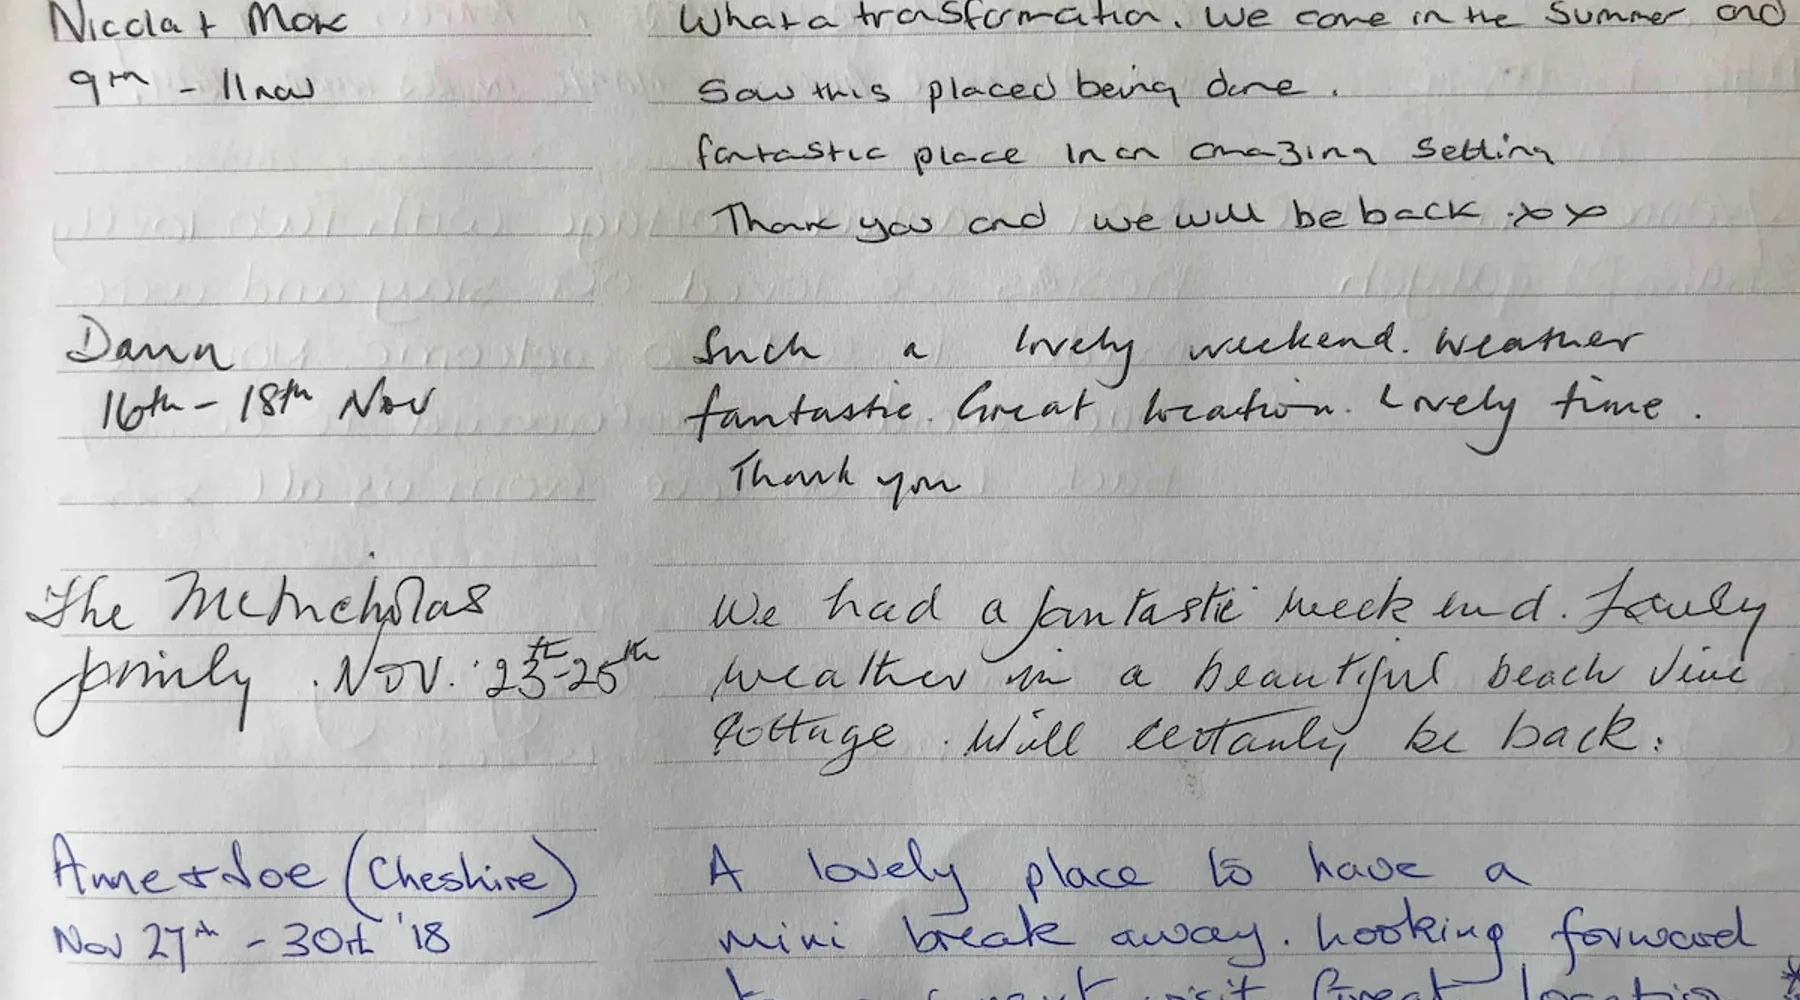 Nicola + Mark
What a transformation. We came in the Summer and
9th - 11 nov
Saw this placed being done.
fantastic place in an amazing setting
Thank you and we will be back xx
Dawn
Such a lovely weekend. Weather
16th - 18th Nov
fantastic. Great location. Lovely time.
Thank you
The McNicholas
We had a fantastic week end. Lovely
family. Nov. 23th-25th
weather in a beautiful beach
Cottage. Will certanly be back.
Anne + Joe (Cheshire)
A lovely place to have a
Nov 27th - 30th '18
mini break away. Looking forward
next visit Great location